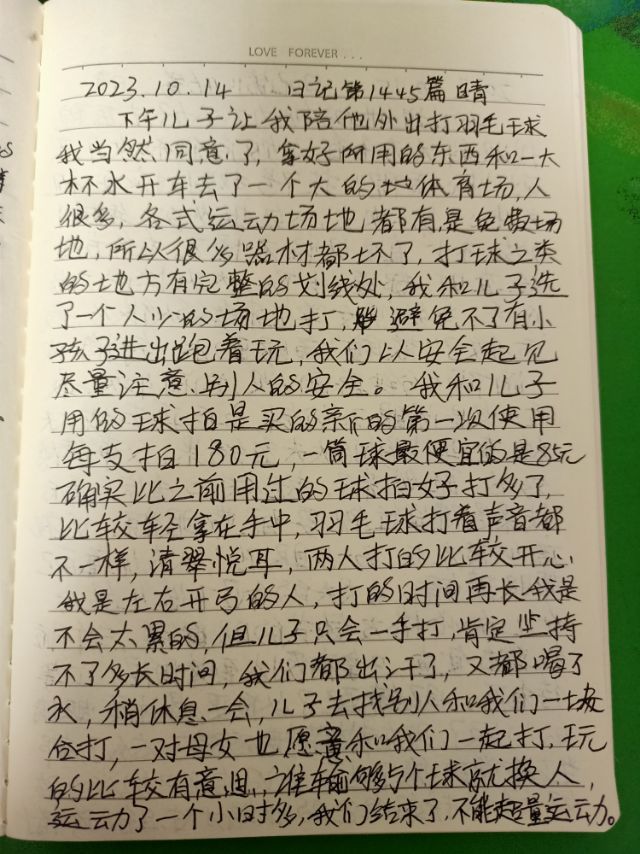 LOVE FOREVER...
2023.10.14 日记第1445篇 晴
下午儿子让我陪他外出打羽毛球
我当然同意了，拿好所用的东西和一大
杯水开车去了一个大的地体育场，人
很多，各式运动场地都有，是免费场
地，所以很多器材都坏了，打球之类
的地方有完整的划线处，我和儿子选
了一个人少的场地打，避免不了有小
孩子进出跑着玩，我们以安全起见
尽量注意别人的安全。我和儿子
用的球拍是买的新的第一次使用
每支拍180元，一筒球最便宜的是85元
确实比之前用过的球拍好打多了，
比较轻拿在手中，羽毛球打着声音都
不一样，清翠悦耳，两人打的比较开心，
我是左右开弓的人，打的时间再长我是
不会太累的，但儿子只会一手打，肯定坚持
不了多长时间，我们都出汗了，又都喝了
水，稍休息一会，儿子去找别人和我们一块
台打，一对母女也愿意和我们一起打，玩
的比较有意思，谁输够5个球就换人，
运动了一个小时多，我们结束了，不能超量运动。